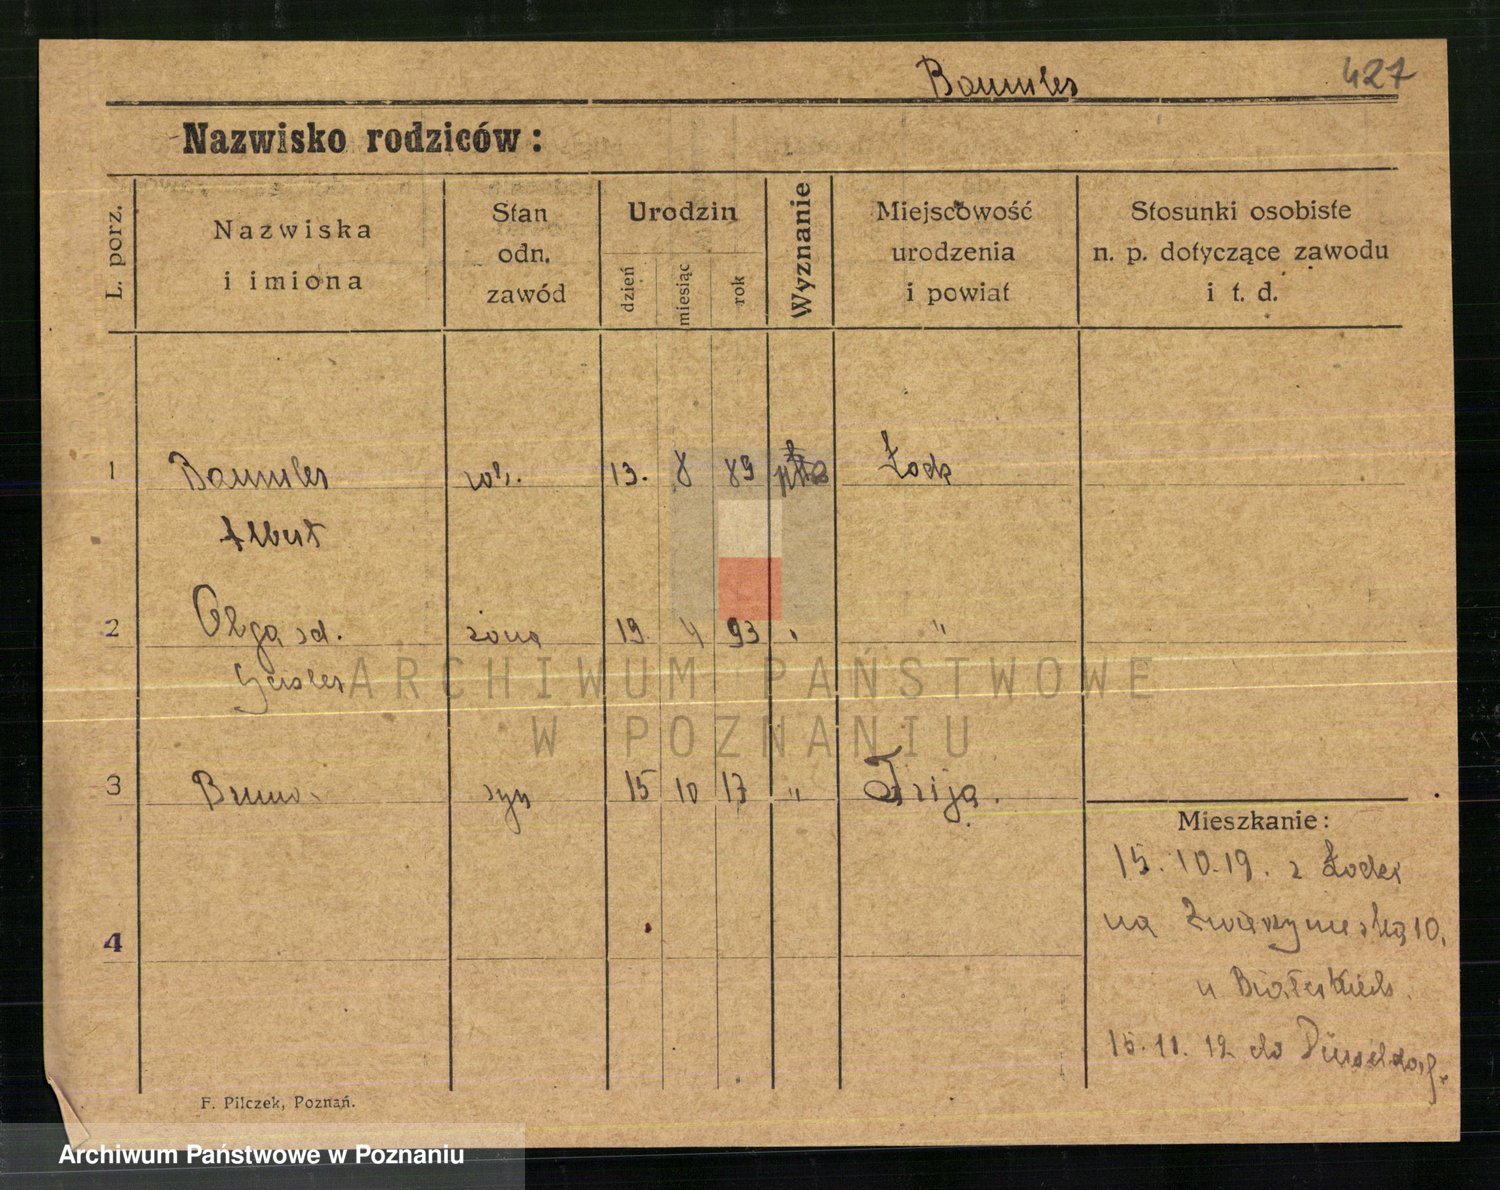 Baumler 427
Nazwisko rodziców :
L. porz.
Nazwiska
i imiona
Stan
odn.
zawód
Urodzin
dzień
miesiąc
rok
Wyznanie
Miejscowość
urodzenia
i powiat
Stosunki osobiste
n. p. dotyczące zawodu
i t. d.
1 Baumler rob. 13. 8 89 Łódź
Albert
2 Olga zd. żona 19. 4 93 "
Geisler
3 Bruno syn 15 10 17 "
Mieszkanie :
15.10.19. z Łodzi
4
na Zwierzyniecką 10.
u
do Düsseldorf.
F. Pilczek, Poznań.
ARCHIWUM PAŃSTWOWE
W POZNANIU
Archiwum Państwowe w Poznaniu